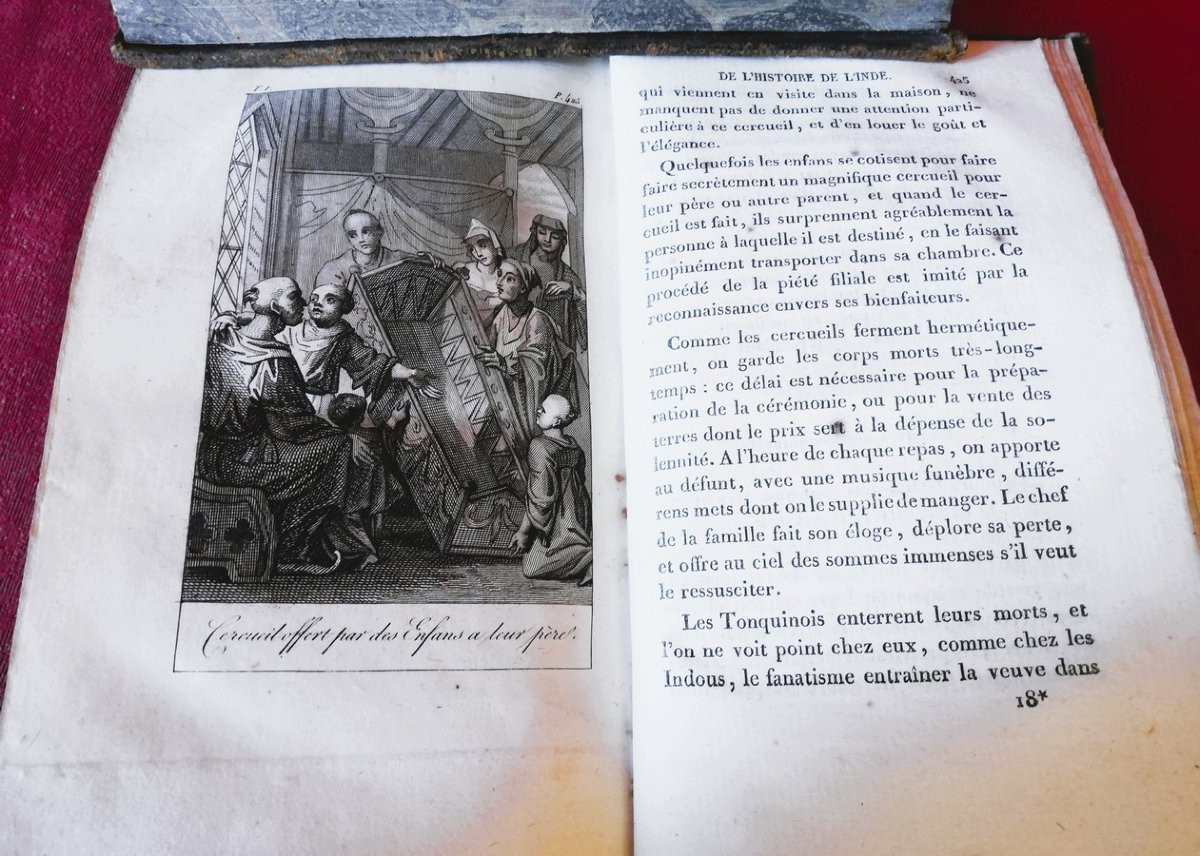 T. 1
P. 425
Cercueil offert par des Enfans a leur père.
DE L'HISTOIRE DE L'INDE.
425
qui viennent en visite dans la maison, ne
manquent pas de donner une attention parti-
culière à ce cercueil, et d'en louer le goût et
l'élégance.
Quelquefois les enfans se cotisent pour faire
faire secrètement un magnifique cercueil pour
leur père ou autre parent, et quand le cer-
cueil est fait, ils surprennent agréablement la
personne à laquelle il est destiné, en le faisant
inopinément transporter dans sa chambre. Ce
procédé de la piété filiale est imité par la
reconnaissance envers ses bienfaiteurs.
Comme les cercueils ferment hermétique-
ment, on garde les corps morts très-long-
temps : ce délai est nécessaire pour la prépa-
ration de la cérémonie, ou pour la vente des
terres dont le prix sert à la dépense de la so-
lennité. A l'heure de chaque repas, on apporte
au défunt, avec une musique funèbre, diffé-
rens mets dont on le supplie de manger. Le chef
de la famille fait son éloge, déplore sa perte,
et offre au ciel des sommes immenses s'il veut
le ressusciter.
Les Tonquinois enterrent leurs morts, et
l'on ne voit point chez eux, comme chez les
Indous, le fanatisme entraîner la veuve dans
18*